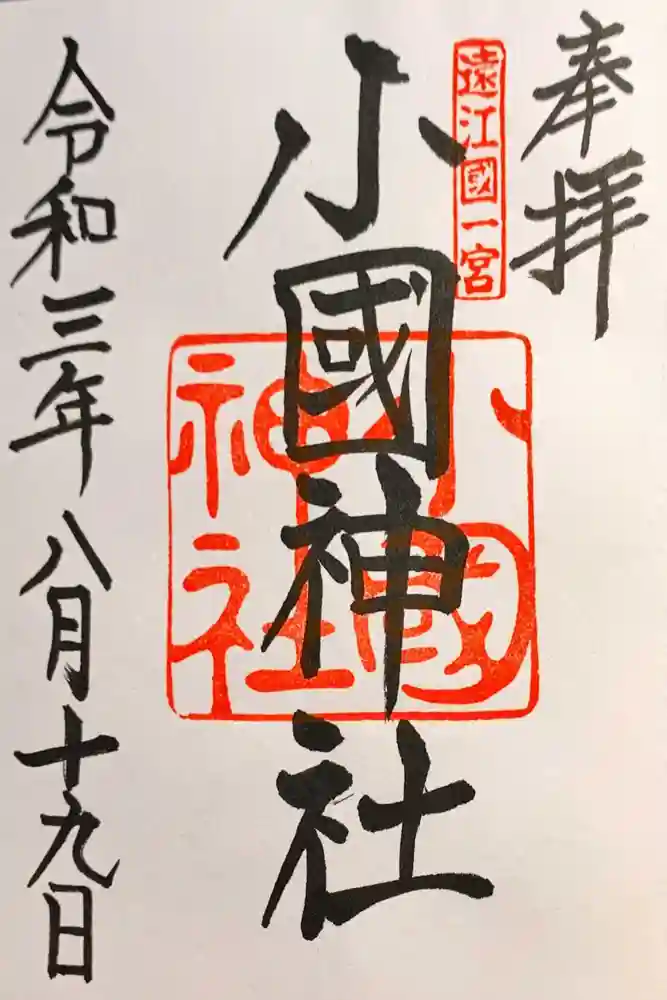 奉拝
遠江國一宮
小國神社
小國神社
令和三年八月十九日